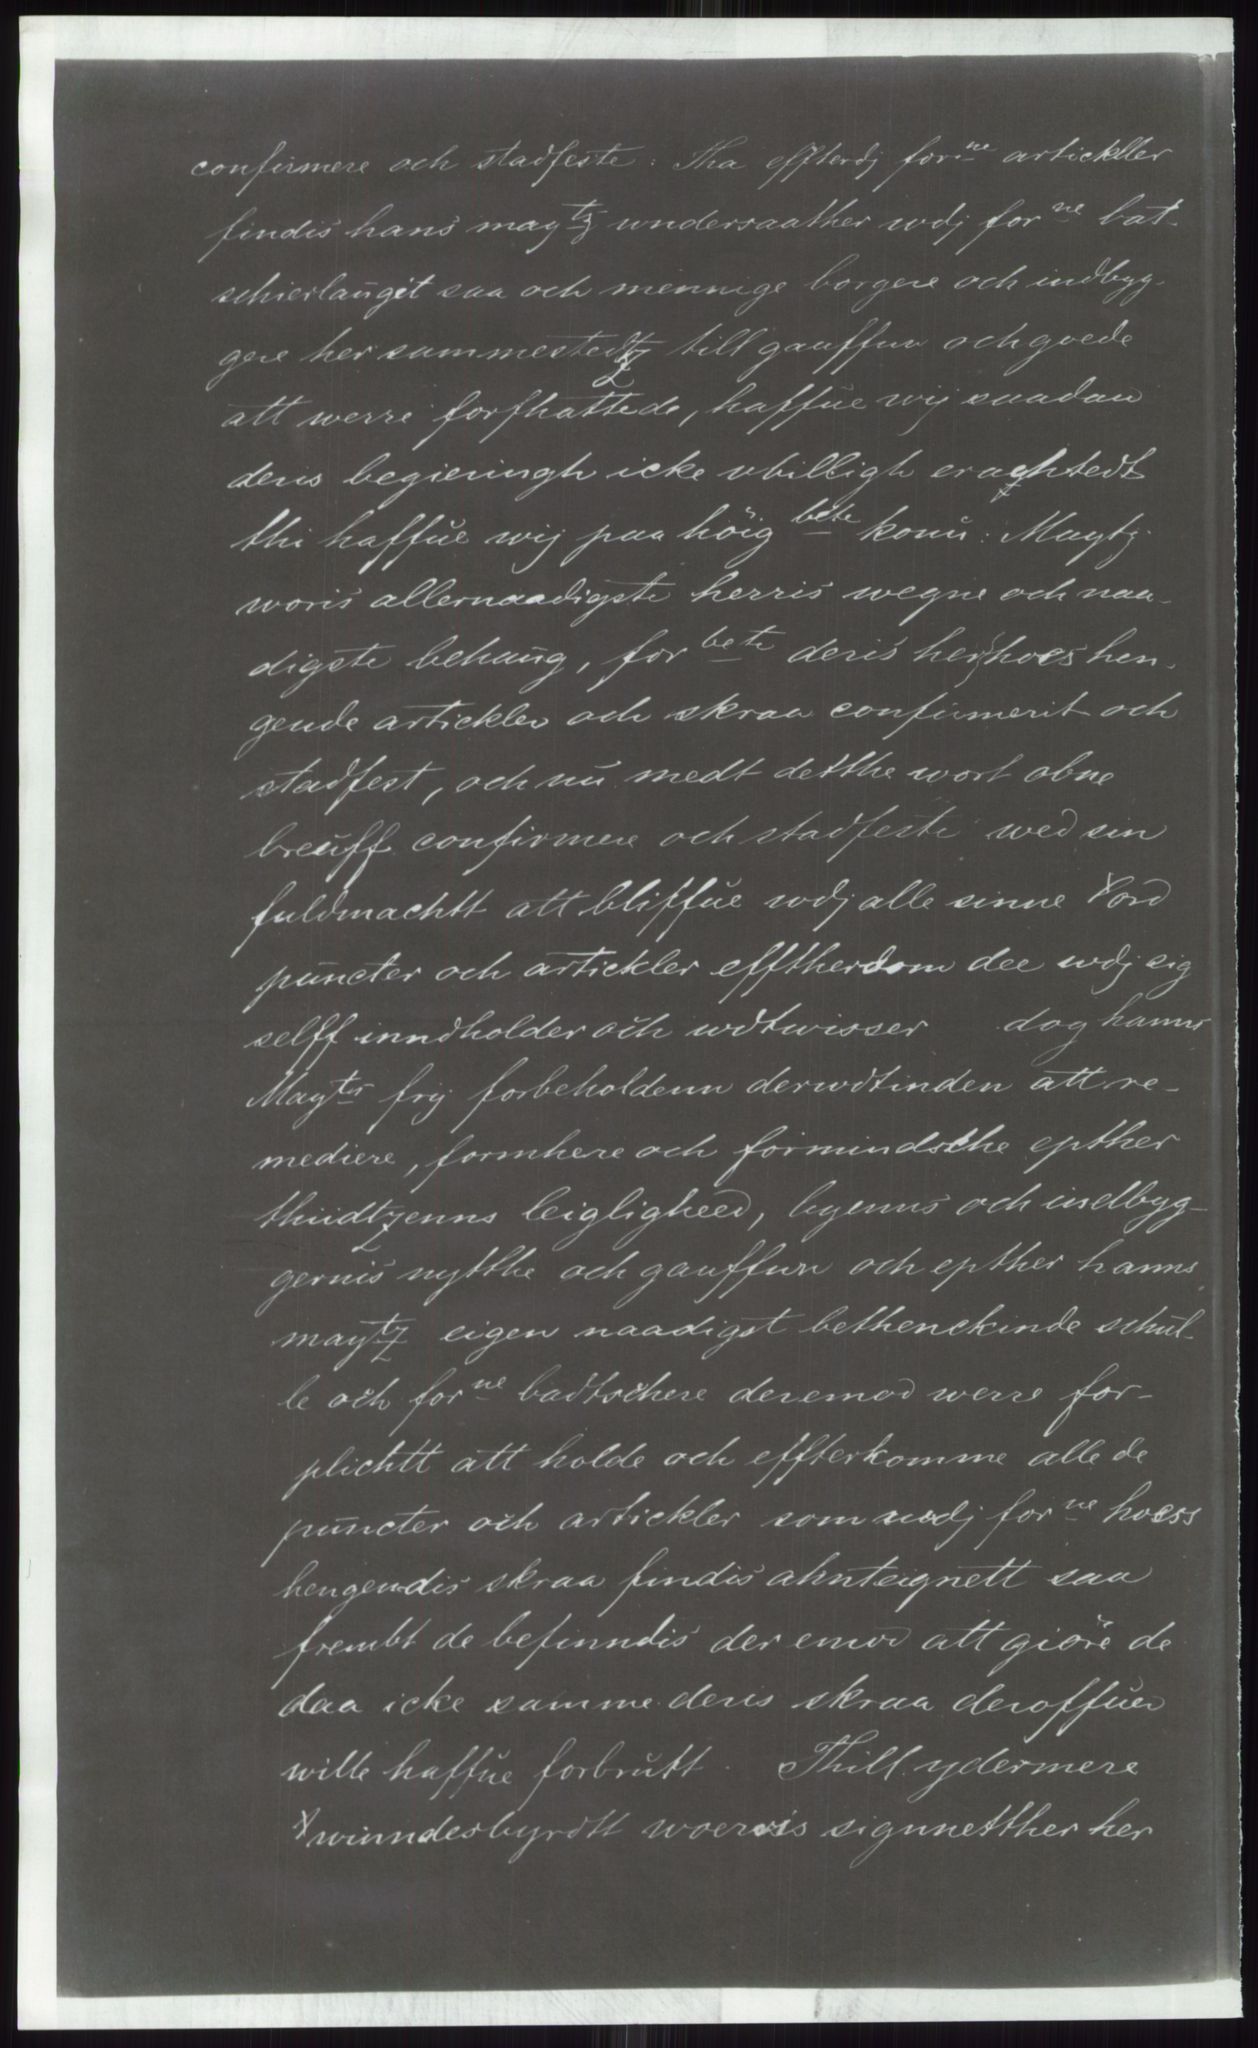 confirmere och stadfeste: Tha effterdj for ne artickller
findis hans maytz undersaather udj for ne bat-
schierlaugit saa och mennige borgere och indbyg-
gere her sammestedtz till gauffun och goede
att werre forfhattede, haffue wij saadan
deris begieringh icke ubilligh erachtedt
thi haffue wij paa höig bete konn: Maytz
woris allernaadigste herris wegne och naa-
digste behaug, for bete deris herhoes hen-
gende artickler och skraa confirmerit och
stadfest, och nu medt detthe wort obne
breuff confirmere och stadfeste wed sin
fuldmachtt att bliffue udj alle sinne ord
puncter och artickler efftherdom dee udj sig
selff inndholder och udtwisser dog hanns
Mayts frij forbeholdenn derudtinden att re-
mediere, formhere och formindsche epther
thiidtzenns leiglighed, byenns och indbyg-
gernis nytthe och gauffun och epther hanns
maytz eigen naadigst bethenckinde schul-
le och for ne badtschere deremod werre for-
plichtt att holde och effterkomme alle de
puncter och artickler som udj for ne hoess
hengendis skraa findis ahnteignett saa
frembt de befinndis der emod att giöre de
daa icke samme deris skraa deroffuer
wille haffue forbrutt. Thill ydermere
winndesbyrdtt woeris signnetther her